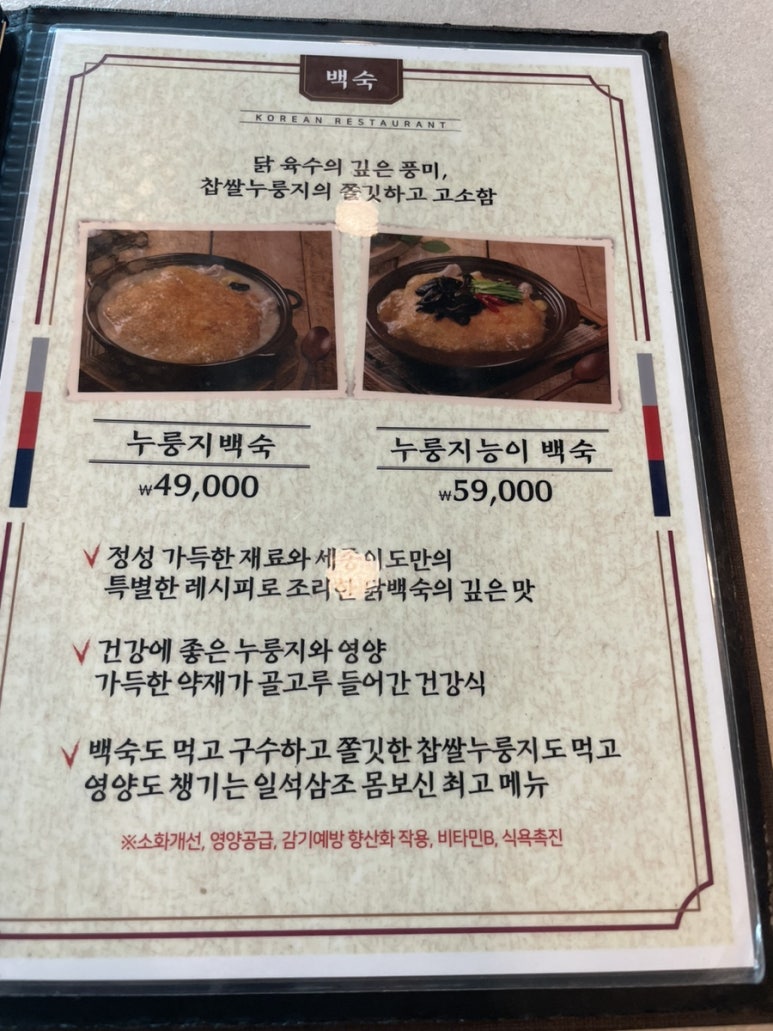 백숙
KOREAN RESTAURANT
닭 육수의 깊은 풍미,
찹쌀누룽지의 쫄깃하고 고소함
누룽지백숙
₩49,000
누룽지능이 백숙
₩59,000
정성 가득한 재료와 세종이도만의
특별한 레시피로 조리한 닭백숙의 깊은 맛
건강에 좋은 누룽지와 영양
가득한 약재가 골고루 들어간 건강식
백숙도 먹고 구수하고 쫄깃한 찹쌀누룽지도 먹고
영양도 챙기는 일석삼조 몸보신 최고 메뉴
※소화개선, 영양공급, 감기예방 향산화 작용, 비타민B, 식욕촉진